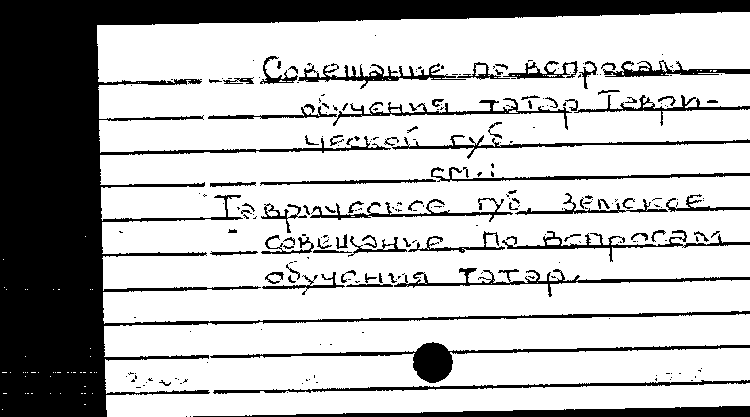 Совещание по вопросам
обучения татар Таври-
ческой губ.
см.:
Таврическое губ. земское
совещание по вопросам
обучения татар.